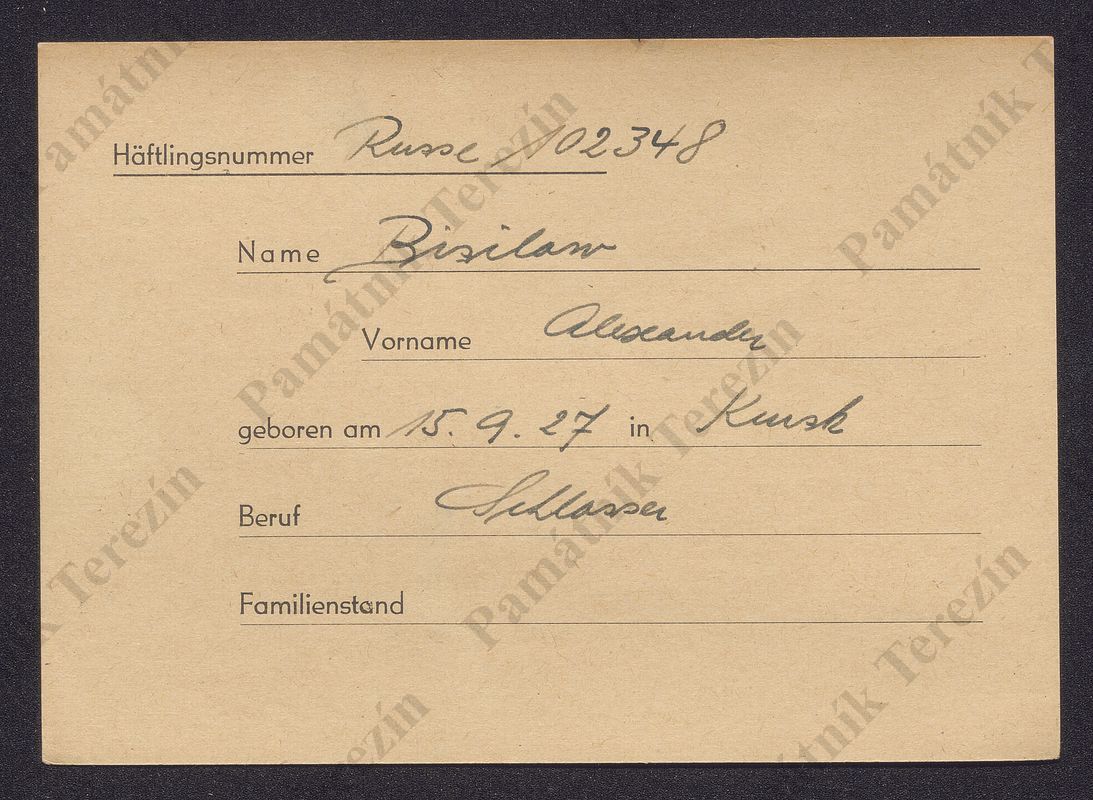 Häftlingsnummer Russe 102348
Name Bisilow
Vorname Alexander
geboren am 15. 9. 27 in Kursk
Beruf Schlosser
Familienstand
Památník Terezín